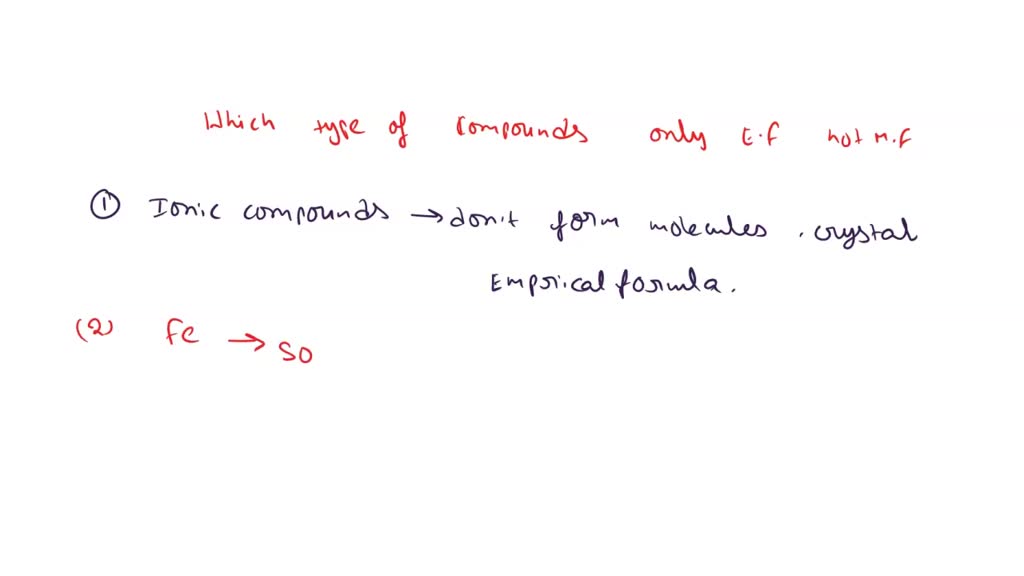 Which type of compounds only E.f not M.f
① Ionic compounds → don't form molecules . crystal
Empirical formula.
(2) fe → so